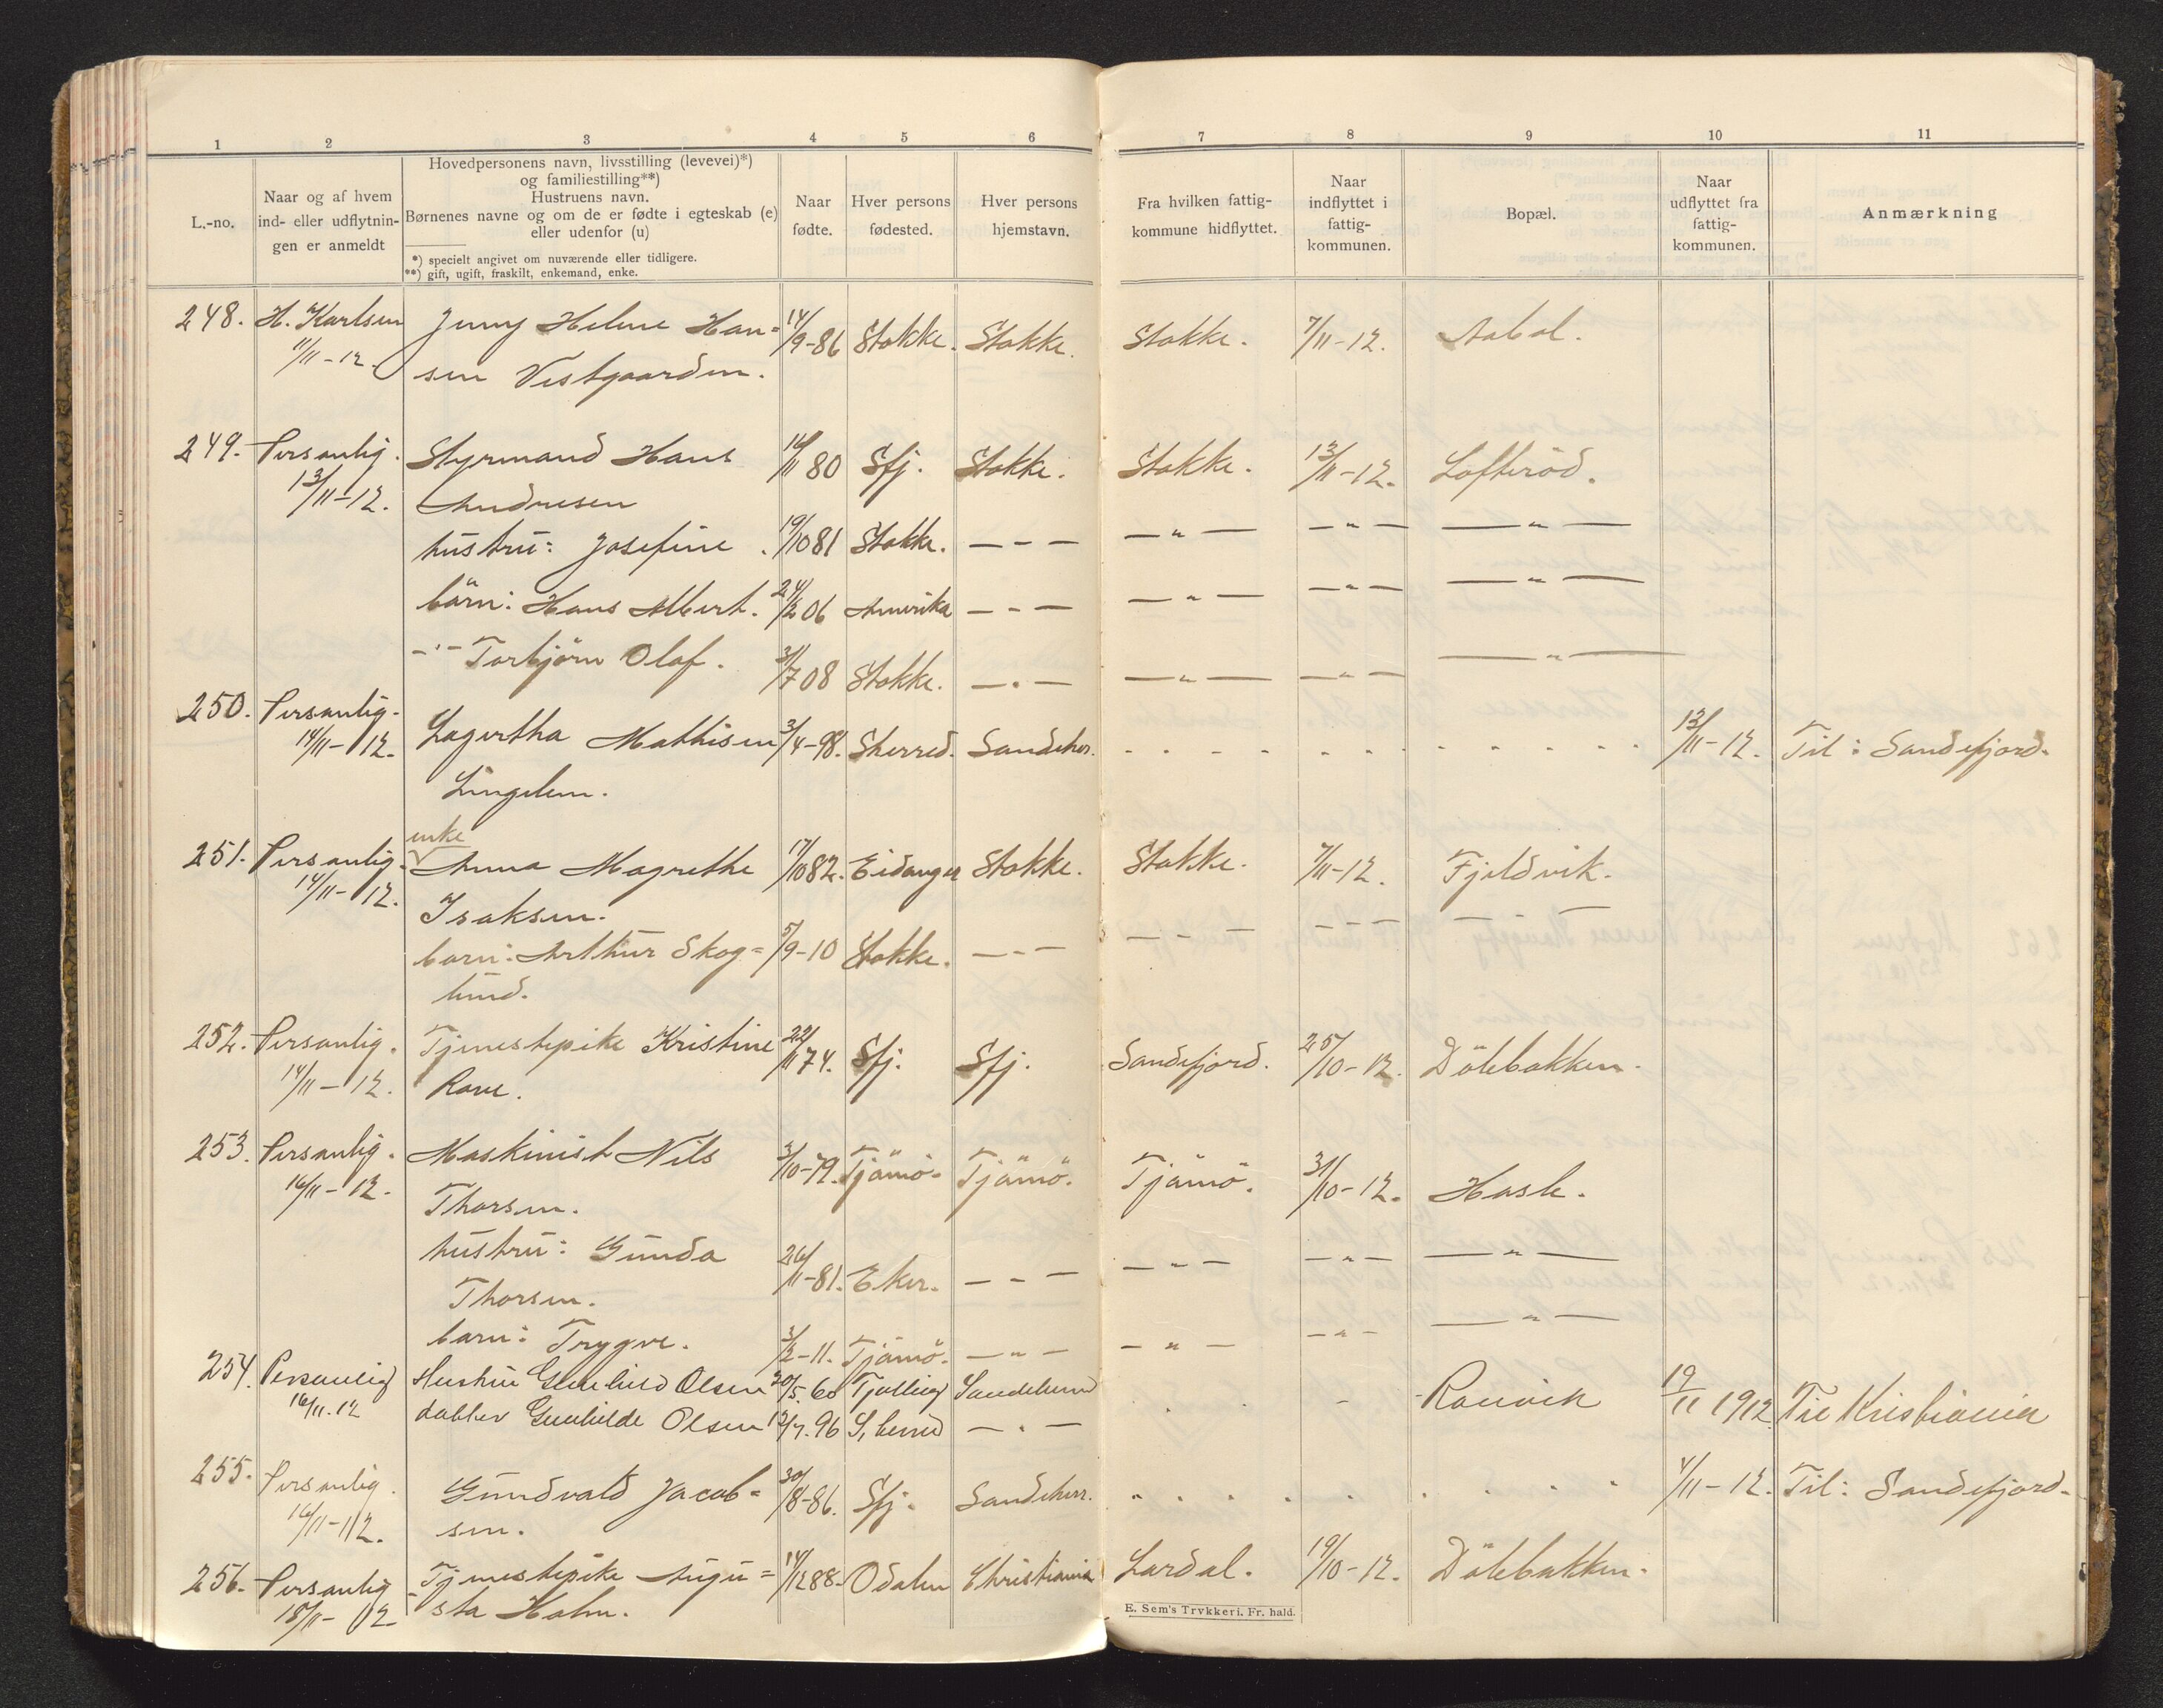 1 2 3 4 5 6 7 8 9 10 11
L.-no.
Naar og af hvem
ind- eller udflytnin-
gen er anmeldt
Hovedpersonens navn, livsstilling (levevei)*)
og familiestilling**)
Hustruens navn.
Børnenes navne og om de er fødte i egteskab (e)
eller udenfor (u)
*) specielt angivet om nuværende eller tidligere.
**) gift, ugift, fraskilt, enkemand, enke.
Naar
fødte.
Hver persons
fødested.
Hver persons
hjemstavn.
Fra hvilken fattig-
kommune hidflyttet.
Naar
indflyttet i
fattig-
kommunen.
Bopæl.
Naar
udflyttet fra
fattig-
kommunen.
Anmærkning
248. H. Karlsen Jenny Helene Han= 14/9-86 Stokke. Stokke. Stokke. 7/11-12. Aabol.
11/11-12. sen Vestgaarden.
249. Personlig. Styrmand Hans 16/11 80 Sfj. Stokke. Stokke. 13/11-12. Lofteröd.
13/11-12. Andresen
hustru: Josefine. 19/10 81 Stokke. — - — — " — — " — — " —
börn: Hans Albert. 24/2 06 Amerika — - — — " — — " — — " —
-"- Torbjörn Olaf. 31/7 08 Stokke. — . — — " — — " — — " —
250. Personlig. Lagertha Mathisen 3/4-98. Sherred. Sandeher. 13/11-12. Til: Sandefjord.
14/11-12. Lingelem.
enke
251. Personlig. Anna Magrethe 17/10 82. Eidanger Stokke. Stokke. 7/11-12. Fjeldvik.
14/11-12. Isaksen.
barn: Arthur Skog= 5/9-10 Stokke. — - — — - — — - — — - —
lund.
252. Personlig. Tjenestepike Kristine 22/11 74. Sfj. Sfj. Sandefjord. 25/10-12. Dölebakken.
14/11-12. Rove.
253. Personlig. Maskinist Nils 3/10-79. Tjömö. Tjömö. Tjömö. 31/10-12. Hasle.
16/11-12. Thorsen.
hustru: Gunda 26/11-81. Eker. — - — — " — — " — — " —
Thorsen.
barn: Trygve. 3/2-11. Tjömö. — " — — " — — " — — " —
254. Personlig Hustru Gunhild Olsen 20/5.60 Tjølling Sandeherred Ranvik 19/11 1912 Til Kristiania
16/11.12 datter Gunhilde Olsen 12/7.96 S,herred — . —
255. Personlig. Gundvald Jacob= 30/8-86. Sfj. Sandeherr. 4/11-12. Til: Sandefjord.
16/11-12. sen.
256. Personlig Tjenestepike Augu= 14/12 88. Odalen Christiania Lardal. 19/10-12. Dölebakken.
18/11-12. sta Holm.
E. Sem's Trykkeri, Fr. hald.